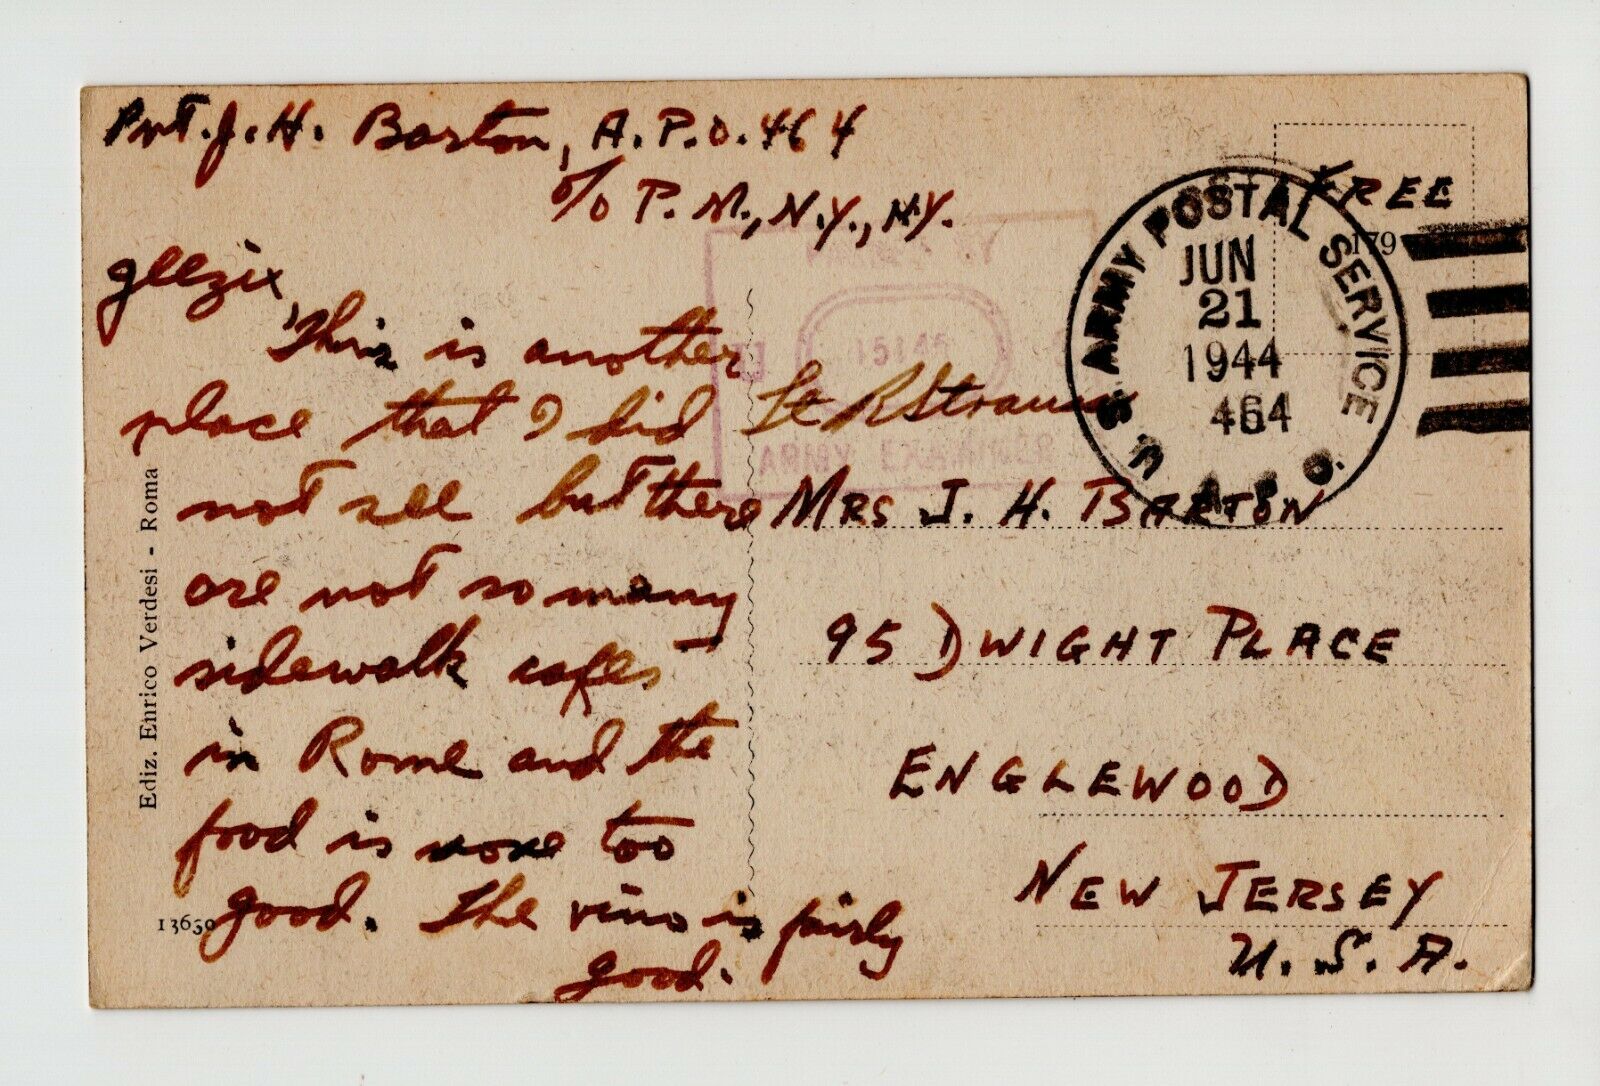 Pvt. J. H. Barton, A.P.O. 464
c/o P.M., N.Y., N.Y.
FREE
179
U.S. ARMY POSTAL SERVICE
JUN
21
1944
464
A.P.O.
Geezix,
This is another
place that I did
not see but there
are not so many
sidewalk cafes
in Rome and the
food is none too
good. The vino is fairly
good.
15145
Lt R Strauss
ARMY EXAMINER
MRS J. H. BARTON
95 DWIGHT PLACE
ENGLEWOOD
NEW JERSEY
U.S.A.
Ediz. Enrico Verdesi - Roma
13630